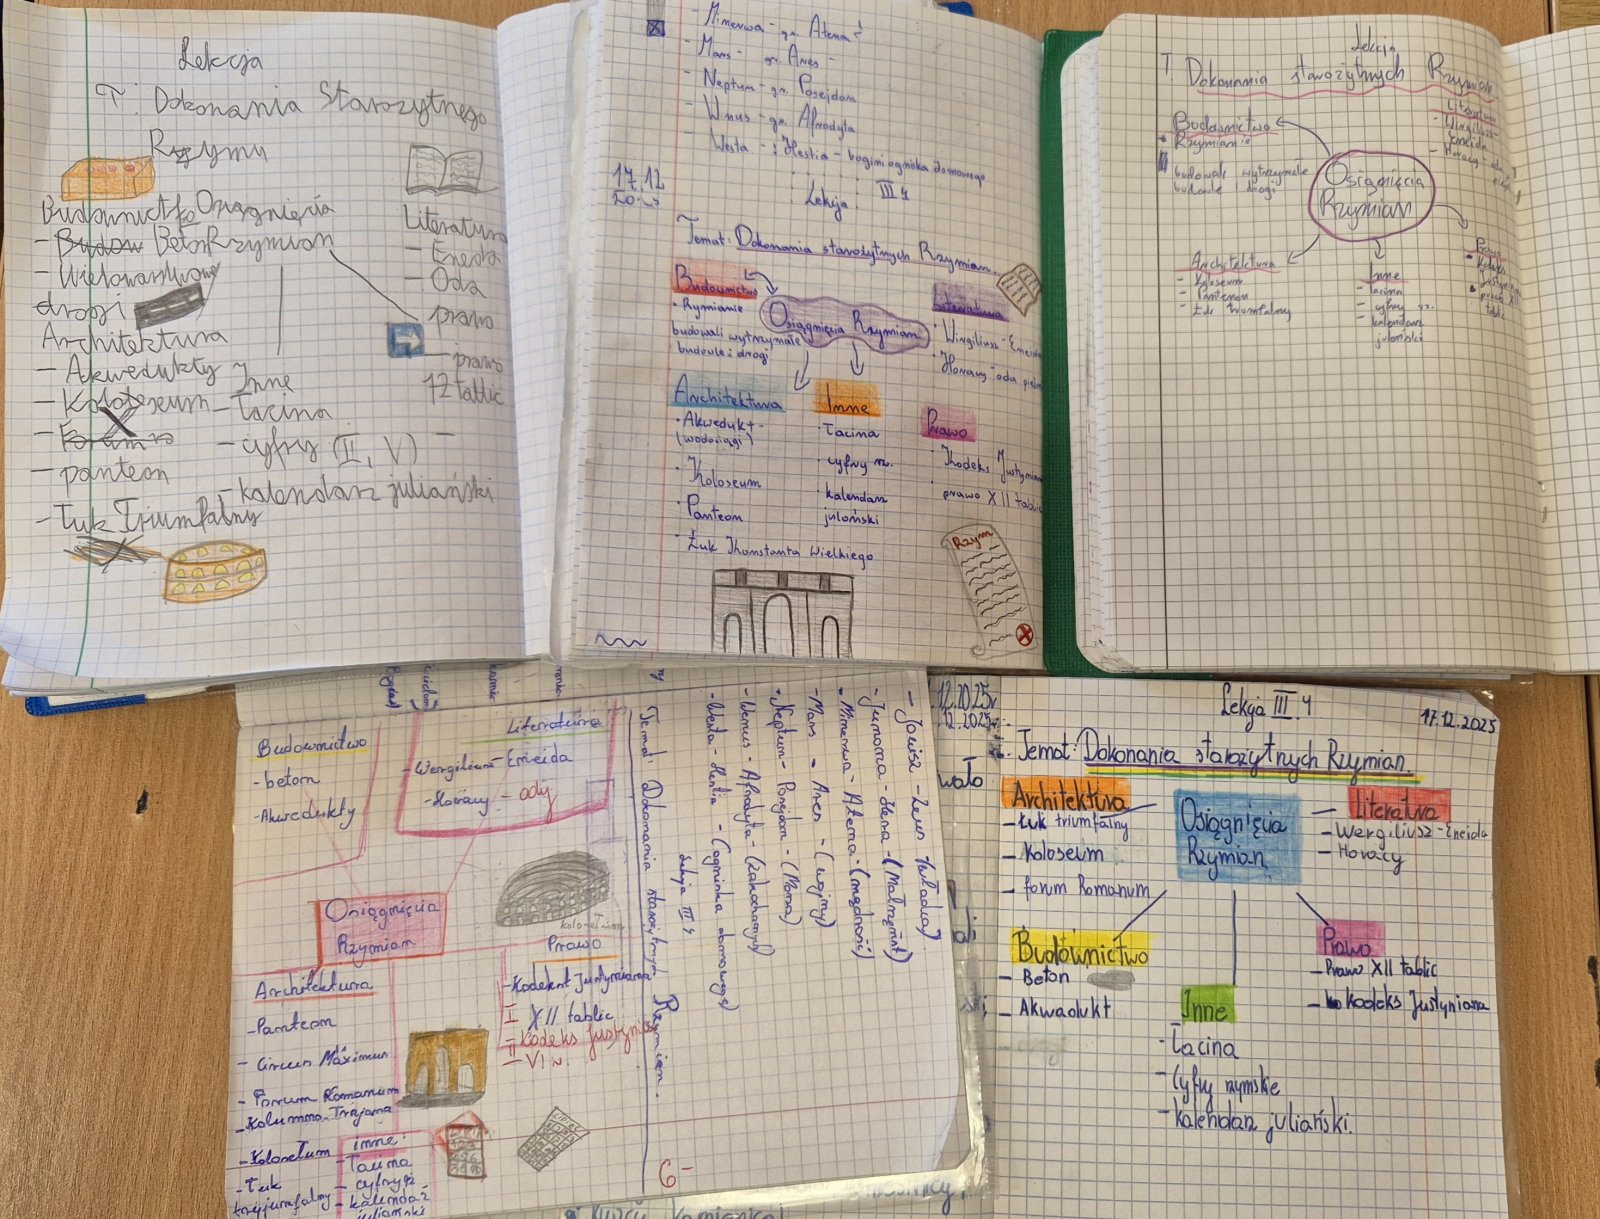 Lekcja
T: Dokonania Starożytnego
Rzymu
Budownictfo
Osiągnięcia
Rzymian
Beton
- Wielowarstwowe
drogi
Architektura
- Akwedukty
- Kolosseum
- panteon
- Łuk Triumfalny
Inne
- Łacina
- cyfry (II, V)
- kalendarz juliański
Literatura
- Eneida
- Oda
prawo
- prawo
12 tablic
- Minerwa - gr. Atena
- Mars - gr. Ares -
- Neptum - gr. Posejdon
- Wnus - gr. Afrodyta
- Westa - : Hestia - bogini ogniska domowego
17.12
Lekcja III 4
Temat: Dokonania starożytnych Rzymian.
Budownictwo
• Rzymianie
budowali wytrzymałe
budowle i drogi
Osiągnięcia Rzymian
Literatura
• Wirgiliusz - Eneida
• Horacy - oda pieśń
Architektura
• Akwedukt -
(wodociągi)
• Koloseum
• Panteon
• Łuk Konstanta Wielkiego
Inne
• Łacina
• cyfry rz.
• kalendarz
juloński
Prawo
• Kodeks Justynian
• prawo XII tablic
Rzym
Lekcja
T Dokonania starożytnych Rzymian
Budownictwo
• Rzymianie
budowali wytrzymałe
budowle i drogi
Osiągnięcia
Rzymian
Literatura
- Wirgiliusz -
Eneida
- Horacy - oda
Architektura
- Koloseum
- Panteon
- Łuk triumfalny
Inne
- łacina
- cyfry rz.
- kalendarz
juloński
Prawo
• Kodeks
• prawo XII
tablic
Budownictwo
- beton
- Akwedukty
Literatura
- Wergiliusz - Eneida
- Horacy - ody
Osiągnięcia
Rzymian
koloseum
Architektura
- Panteon
- Circus Maximus
- Forum Romanum
- Kolumna Trajana
- Koloseum
- Łuk
tryjumfalny
inne:
- Łacina
- cyfry rz
- kalendaż
juliański
Prawo
- Kodekst Justyniana
I XII tablic
II Kodeks Justynia
- VI w.
6-
Temat: Dokonania starożytnym Rzymian.
Lekcja III 4
- Jowisz - Zeus - (władca)
- Junona - Hera - (Małżeństw)
- Minerwa - Atena - (mądrości)
- Mars - Ares - (wojny)
- Neptum - Posejdon - (Morza)
- Wenus - Afrodyta - (zakochanych)
- Westa - Hestia - (ogniska domowego)
12.2025r
12.2025r.
wało
Lekcja III. 4
17.12.2025
Temat: Dokonania starożytnych Rzymian.
Architektura
- Łuk triumfalny
- Koloseum
- forum Romanum
Osiągnięcia
Rzymian
- Literatura
- Wergiliusz - Eneida
- Horacy
Budownictwo
- Beton
- Akwadukt
Inne
- Łacina
- Cyfry rzymskie
- kalendarz juliański.
Prawo
- Prawo XII tablic
- kodeks Justyniana